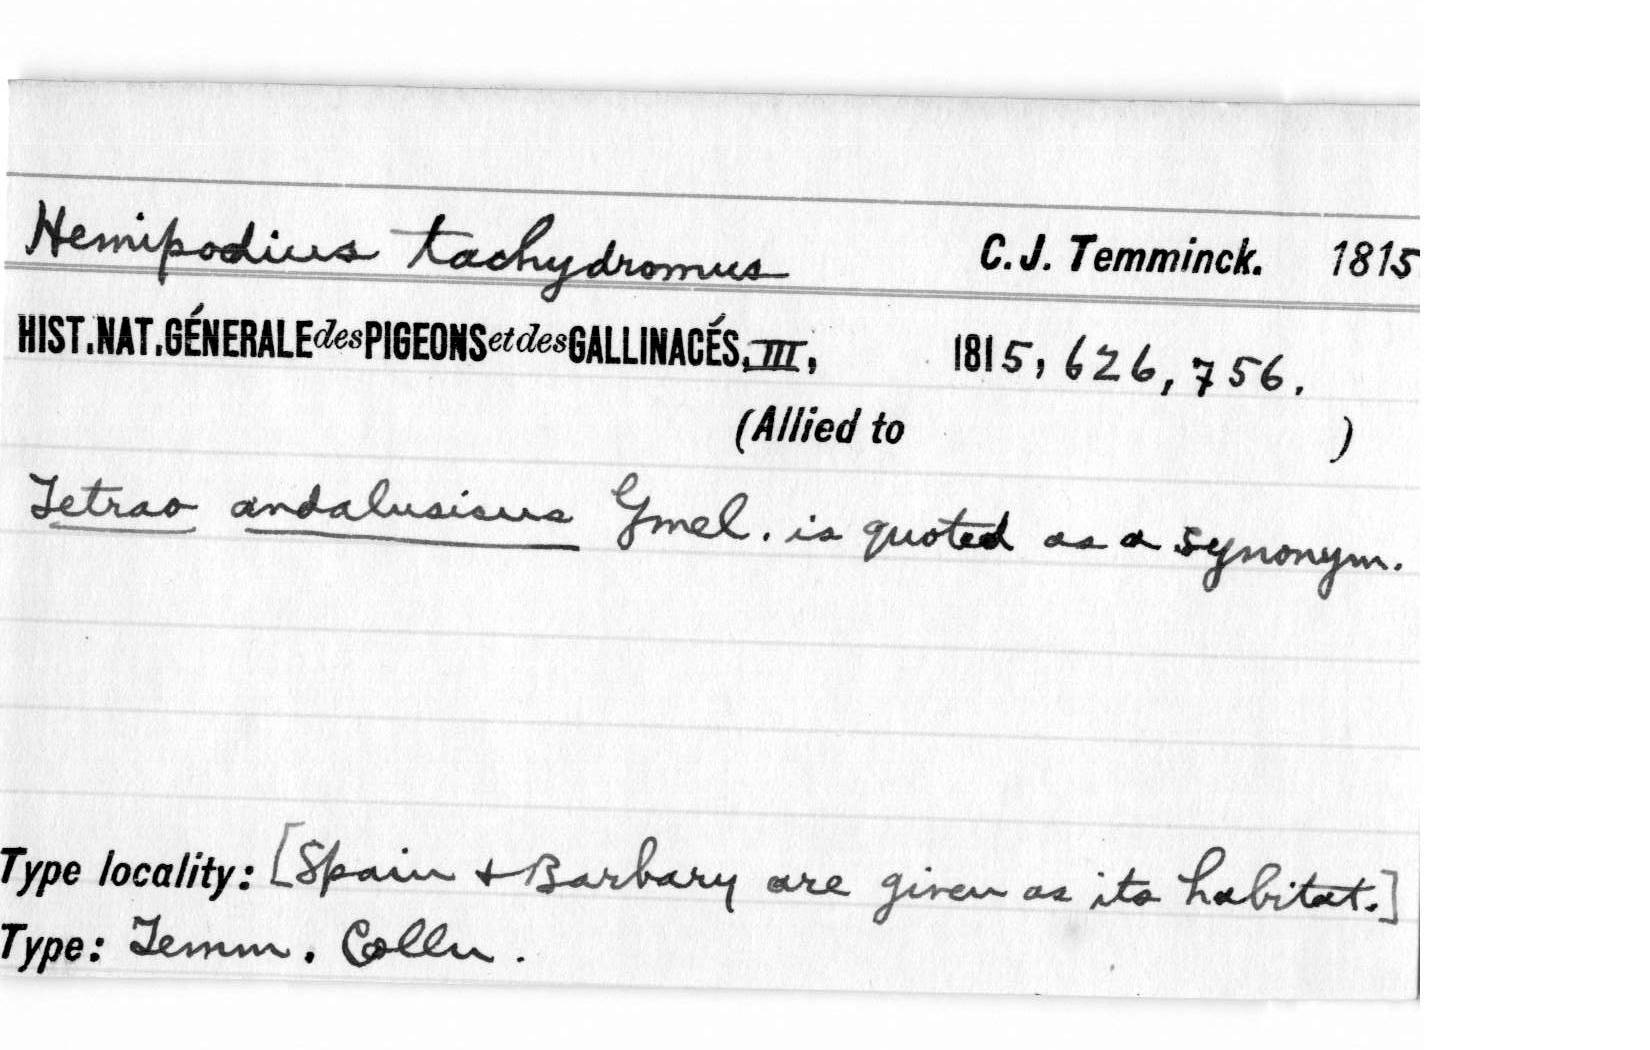 Hemipodius tachydromus C. J. Temminck. 1815
HIST. NAT. GÉNERALE des PIGEONS et des GALLINACÉS, III, 1815, 626, 756.
(Allied to )
Tetrao andalusicus Gmel. is quoted as a synonym.
Type locality: [Spain + Barbary are given as its habitat.]
Type: Temm. Colln.